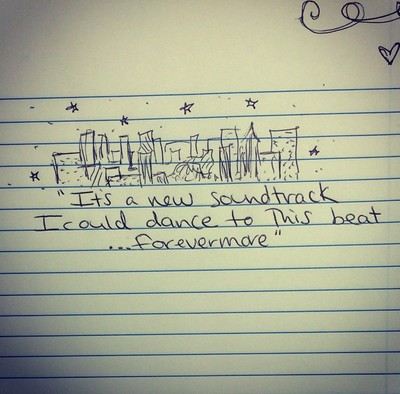 "It's a new soundtrack
I could dance to This beat
...forevermore"